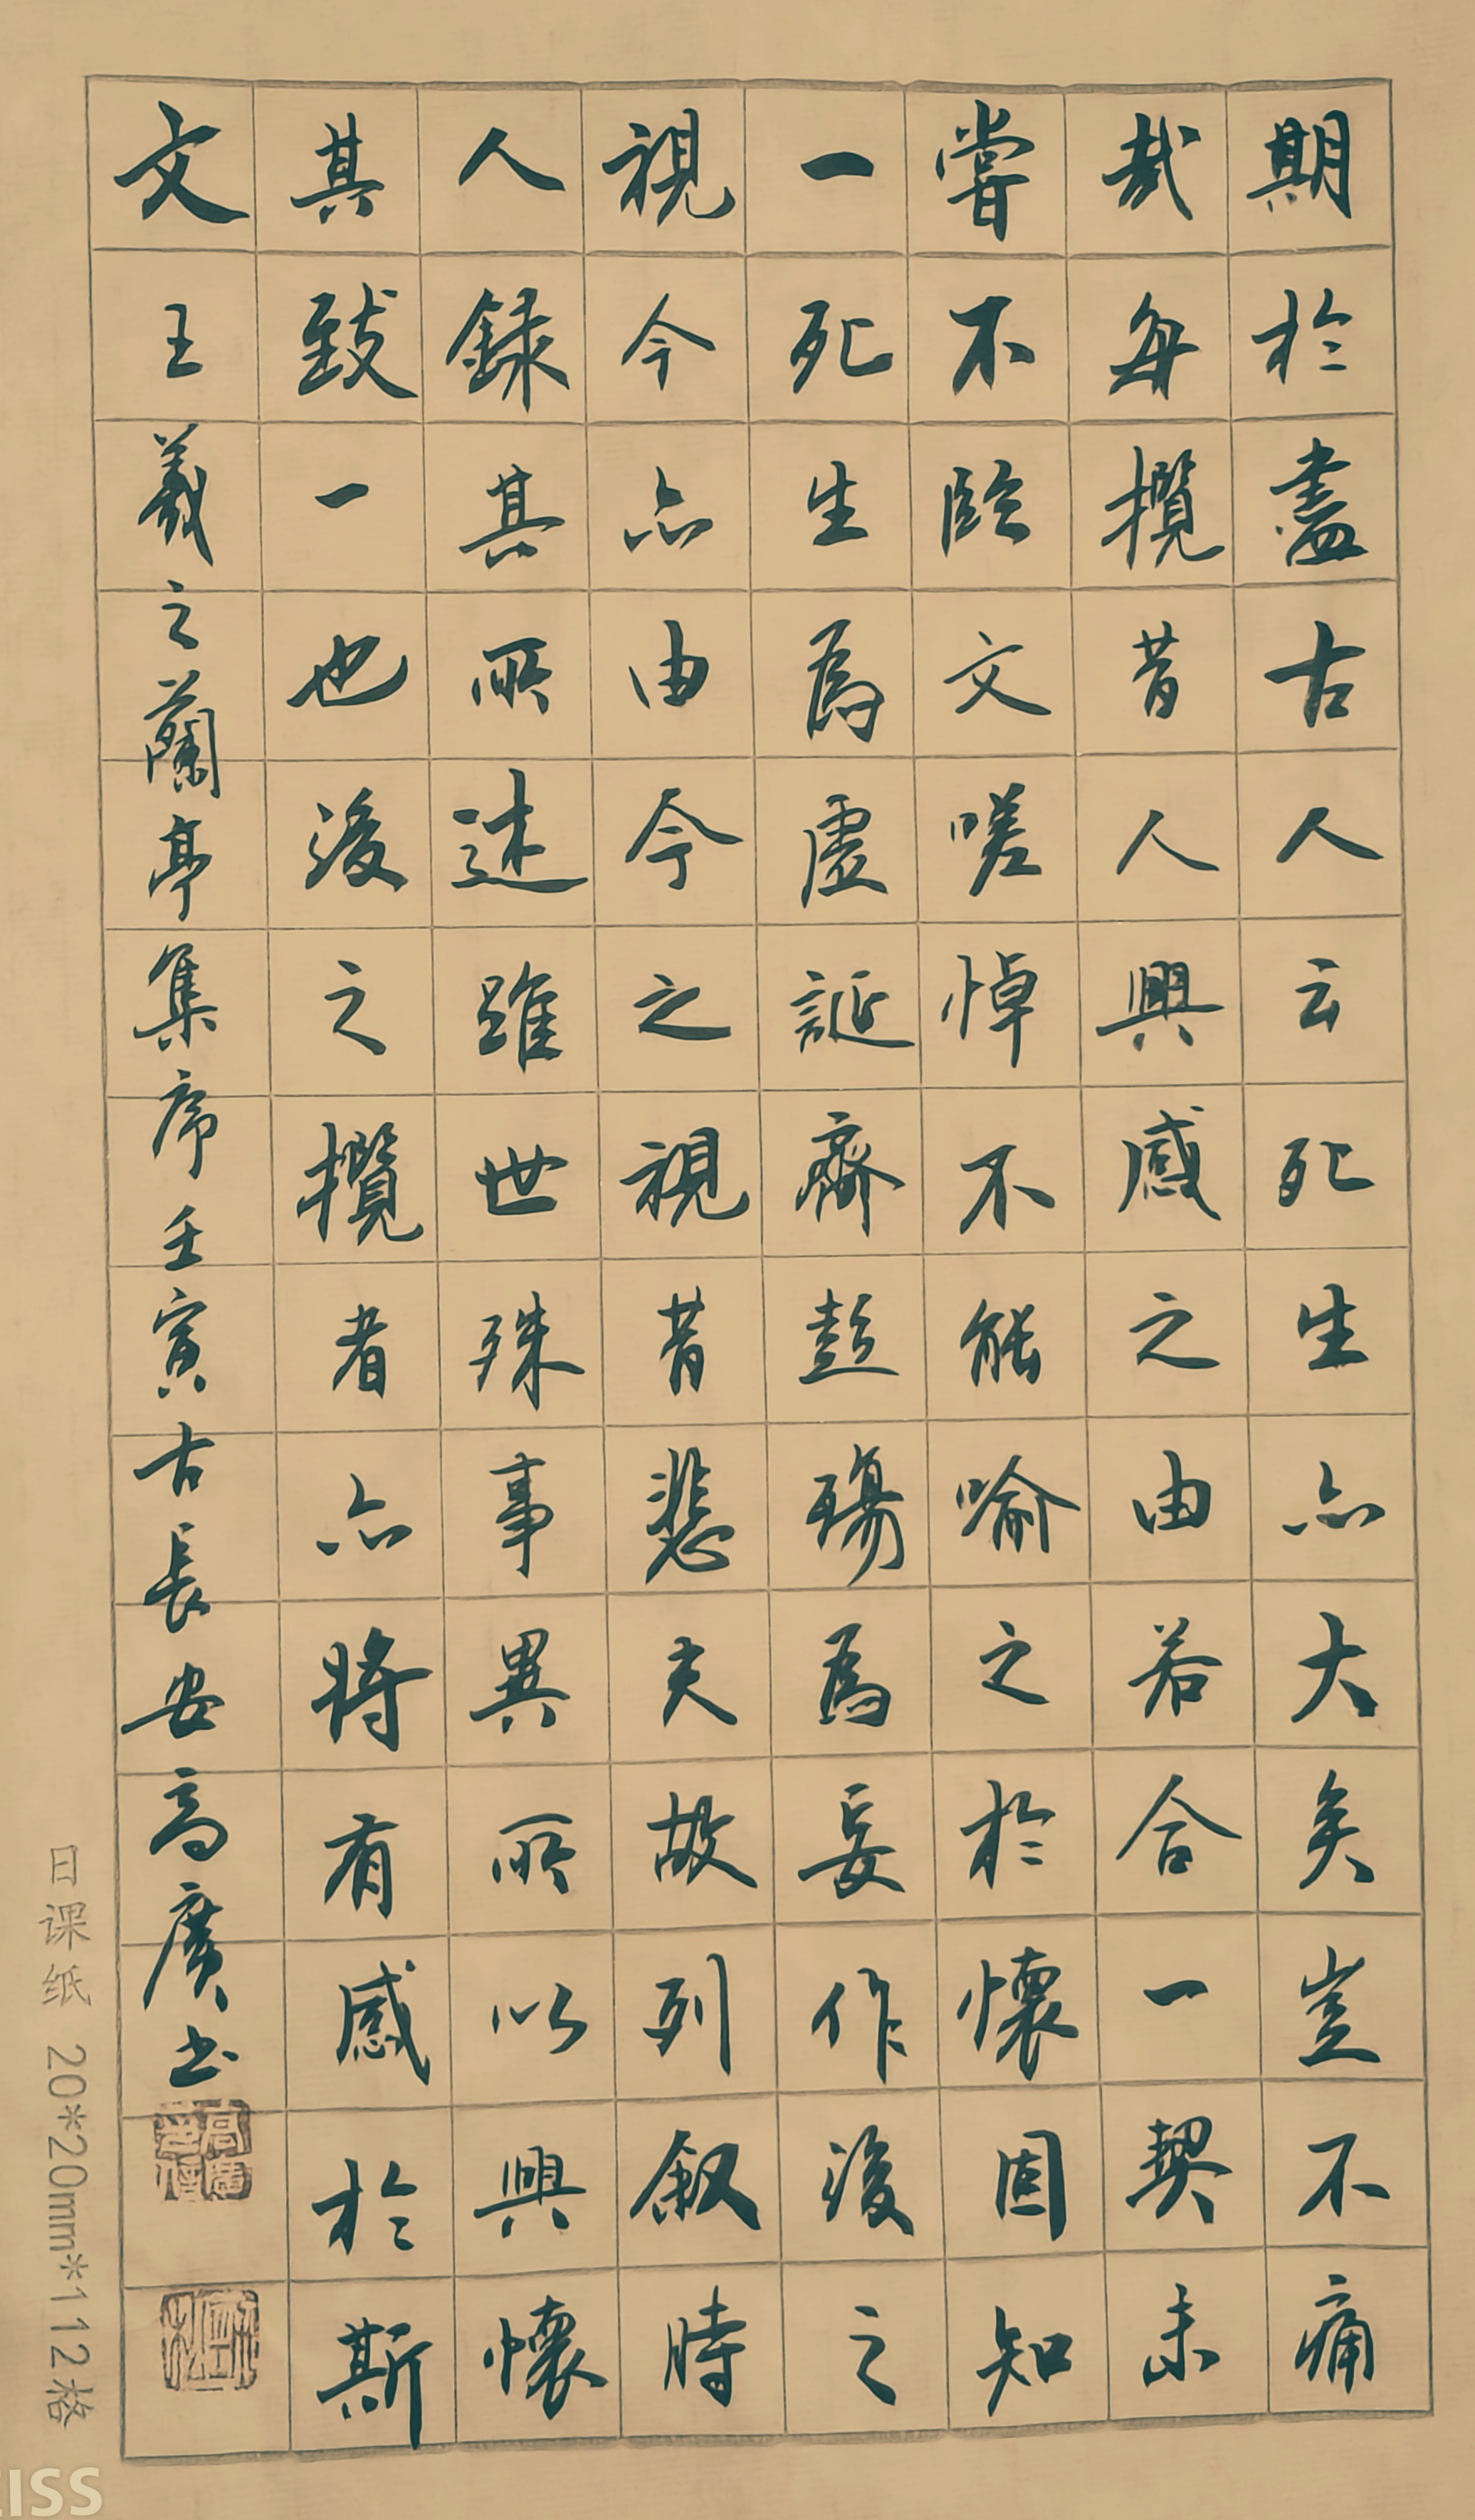 期於盡古人云死生亦大矣豈不痛
哉每攬昔人興感之由若合一契未
嘗不臨文嗟悼不能喻之於懷固知
一死生為虛誕齊彭殤為妄作後之
視今亦由今之視昔悲夫故列叙時
人錄其所述雖世殊事異所以興懷
其致一也後之攬者亦將有感於斯
文王羲之蘭亭集序壬寅古長安高廣書
日课纸 20*20mm*112格
EISS